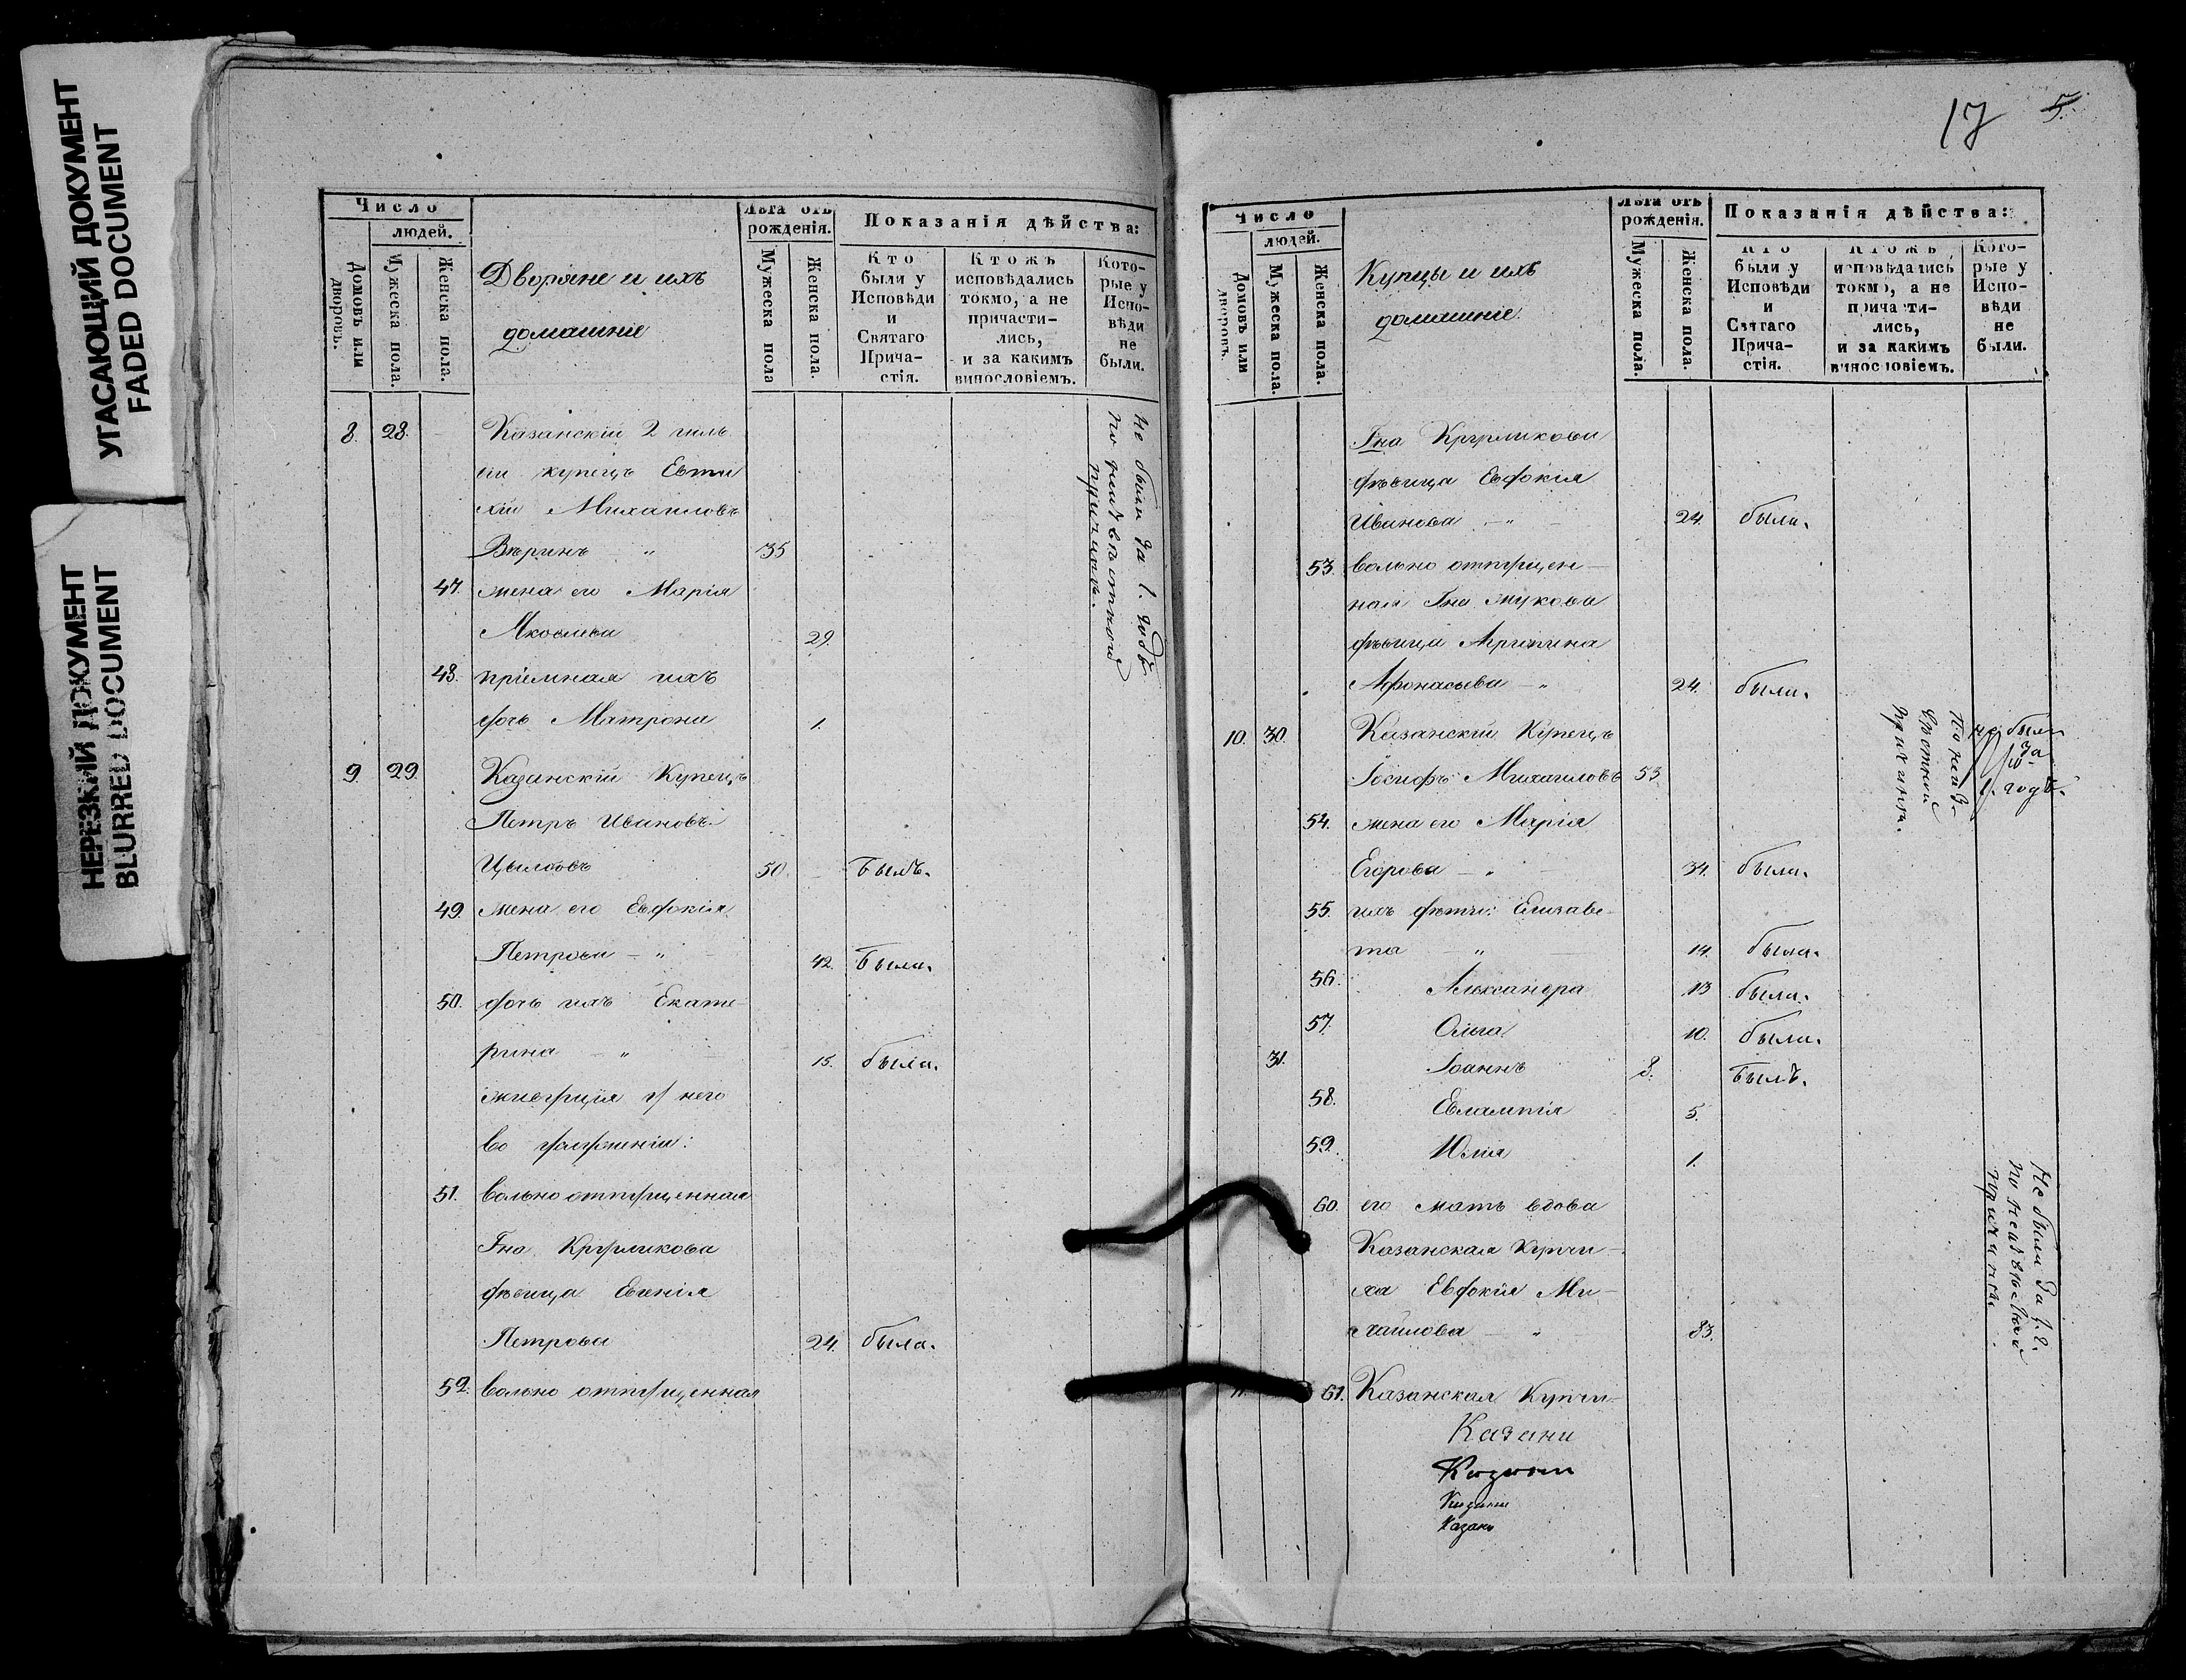 УГАСАЮЩИЙ ДОКУМЕНТ
FADED DOCUMENT
НЕРЕЗКИЙ ДОКУМЕНТ
BLURRED DOCUMENT
Число
людей.
Домовъ или
дворовъ.
Мужеска пола.
Женска пола.
Дворяне и ихъ
домашніе
Лѣта отъ
рожденія.
Мужеска пола
Женска пола.
Показанія дѣйства:
Кто
были у
Исповѣди
и
Святаго
Прича-
стія.
Ктожъ
исповѣдались
токмо, а не
причасти-
лись,
и за какимъ
винословіемъ.
Кото-
рые у
Испо-
вѣди
не
были.
8. 28. Казанскій 2 гиль
ди купецъ Евти
хій Михаиловъ
Вѣринъ „ 35
47. жена его Марія
Яковлева 29.
48. пріемная ихъ
дочь Матрона 1.
Не были за 1. годъ
по неизвѣстной
причинѣ.
9. 29. Казанскій Купецъ
Петръ Ивановъ
50. Былъ.
49. жена его Евдокія
Петрова – „ 42. Была.
50. дочь ихъ Екате-
рина – „ 15. была.
у него
во услуженіи:
51. вольно отпущенная
Гна Кругликова
дѣвица Евгенія
Петрова 24. была.
52. вольно отпущенная
17 5.
Число
людей.
Домовъ или
дворовъ.
Мужеска пола.
Женска пола.
Купцы и ихъ
домашніе.
Лѣта отъ
рожденія.
Мужеска пола.
Женска пола.
Показанія дѣйства:
Кто
были у
Исповѣди
и
Святаго
Прича-
стія.
Ктожъ
исповѣдались
токмо, а не
причасти-
лись,
и за какимъ
винословіемъ.
Кото-
рые у
Испо-
вѣди
не
были.
Гна Кругликова
дѣвица Евдокія
Иванова – „ 24. была.
53. вольно отпущен-
ная Гна Жукова
дѣвица Агрипина
Афонасьева – „ 24. была.
10. 30. Казанскій Купецъ
Іосифъ Михаиловъ 53.
не былъ
за
1. годъ.
По неиз-
вѣстной
причинѣ.
54. жена его Марія
Егорова – „ 34. была.
55. ихъ дѣти: Елизаве-
та – „ 14. была.
56. Александра 13 была.
57. Ольга 10. была.
31. Іоаннъ 8. Былъ.
58. Евлампія 5.
59. Юлія 1.
60. его мать вдова
Казанская Купчи-
ха Евдокія Ми-
хайлова – „ 83.
Не были за 1. г.
по неизвѣстной
причинѣ.
61. Казанская Купчи-
Казани
Казани
Казани
Казань